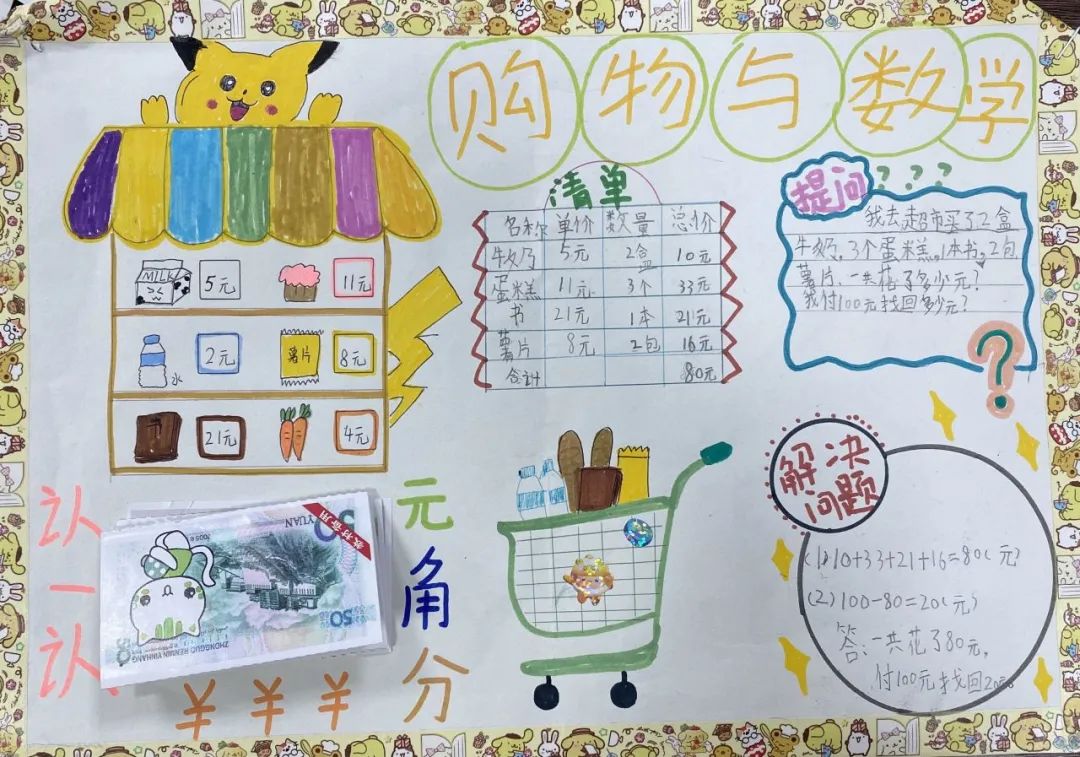 购物与数学
MILK 5元 11元
2元 薯片 8元
水
21元 4元
清单
名称 单价 数量 总价
牛奶 5元 2盒 10元
蛋米糕 11元 3个 33元
书 21元 1本 21元
薯片 8元 2包 16元
合计 80元
提问 ???
我去超市买了2盒
牛奶,3个蛋米糕,1本书,2包
薯片,一共花了多少元?
我付100元找回多少元?
?
解决
问题
(1)10+33+21+16=80(元)
(2)100-80=20(元)
答:一共花了80元,
付100元找回20元
认一认
元角分
教材专用
YUAN
2005
50
ZHONGGUO RENMIN YINHANG
¥ ¥ ¥